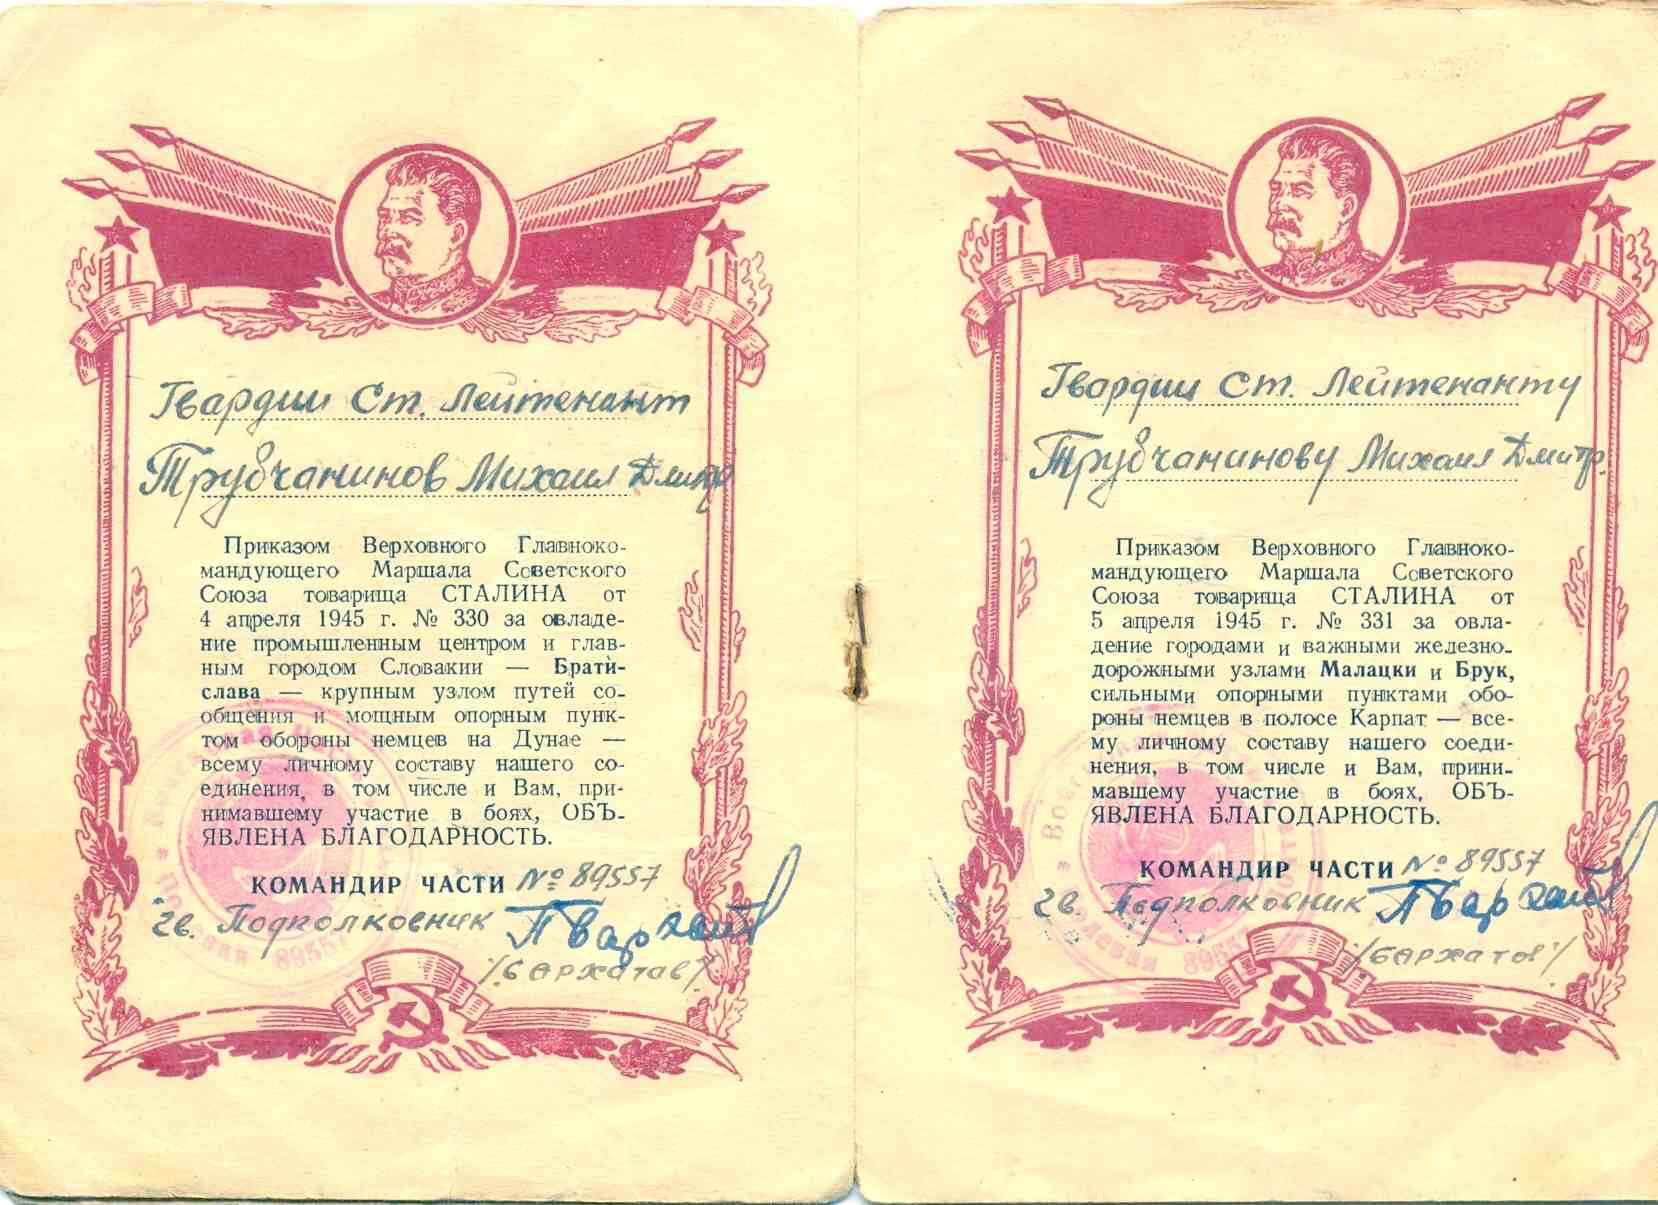 Гвардии Ст. Лейтенант
Трубчанинов Михаил Дмитр
Приказом Верховного Главноко-
мандующего Маршала Советского
Союза товарища СТАЛИНА от
4 апреля 1945 г. № 330 за овладе-
ние промышленным центром и глав-
ным городом Словакии — Брати-
слава — крупным узлом путей со-
общения и мощным опорным пунк-
том обороны немцев на Дунае —
всему личному составу нашего со-
единения, в том числе и Вам, при-
нимавшему участие в боях, ОБЪ-
ЯВЛЕНА БЛАГОДАРНОСТЬ.
КОМАНДИР ЧАСТИ № 89557
гв. Подполковник
/Бархатов/
Гвардии Ст. Лейтенанту
Трубчанинову Михаил Дмитр.
Приказом Верховного Главноко-
мандующего Маршала Советского
Союза товарища СТАЛИНА от
5 апреля 1945 г. № 331 за овла-
дение городами и важными железно-
дорожными узлами Малацки и Брук,
сильными опорными пунктами обо-
роны немцев в полосе Карпат — все-
му личному составу нашего соеди-
нения, в том числе и Вам, прини-
мавшему участие в боях, ОБЪ-
ЯВЛЕНА БЛАГОДАРНОСТЬ.
КОМАНДИР ЧАСТИ № 89557
гв. Подполковник
/Бархатов/